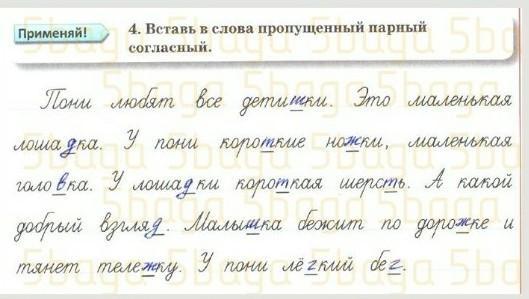 Применяй!
4. Вставь в слова пропущенный парный
согласный.
Пони любят все детишки. Это маленькая
лошадка. У пони короткие ножки, маленькая
головка. У лошадки короткая шерсть. А какой
добрый взгляд. Малышка бежит по дорожке и
тянет тележку. У пони лёгкий бег.
5baga 5baga 5baga